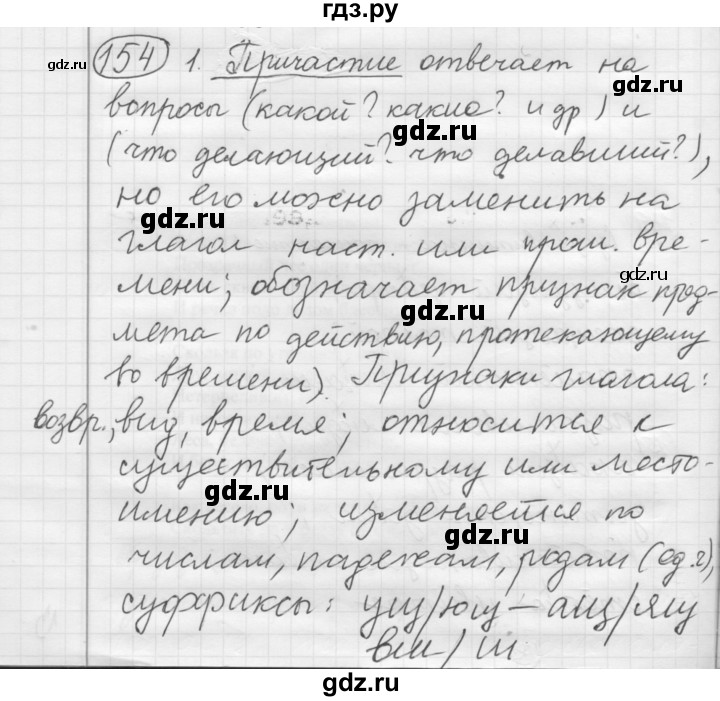 гдз.ру
gdz.ru
154 1. Причастие отвечает на
вопросы (какой? какие? и др) и
gdz.ru
(что делающий? что делавший?),
gdz.ru
но его можно заменить на
gdz.ru
глагол наст. или прош. вре-
gdz.ru
мени; обозначает признак пред-
gdz.ru
мета по действию, протекающему
во времени). Признаки глагола:
возвр., вид, время; относится к
существительному или место-
gdz.ru
имению; изменяется по
gdz.ru
числам, падежам, родам (ед.ч),
суффиксы: ущ/ющ – ащ/ящ
вш/ш
gdz.ru
gdz.ru